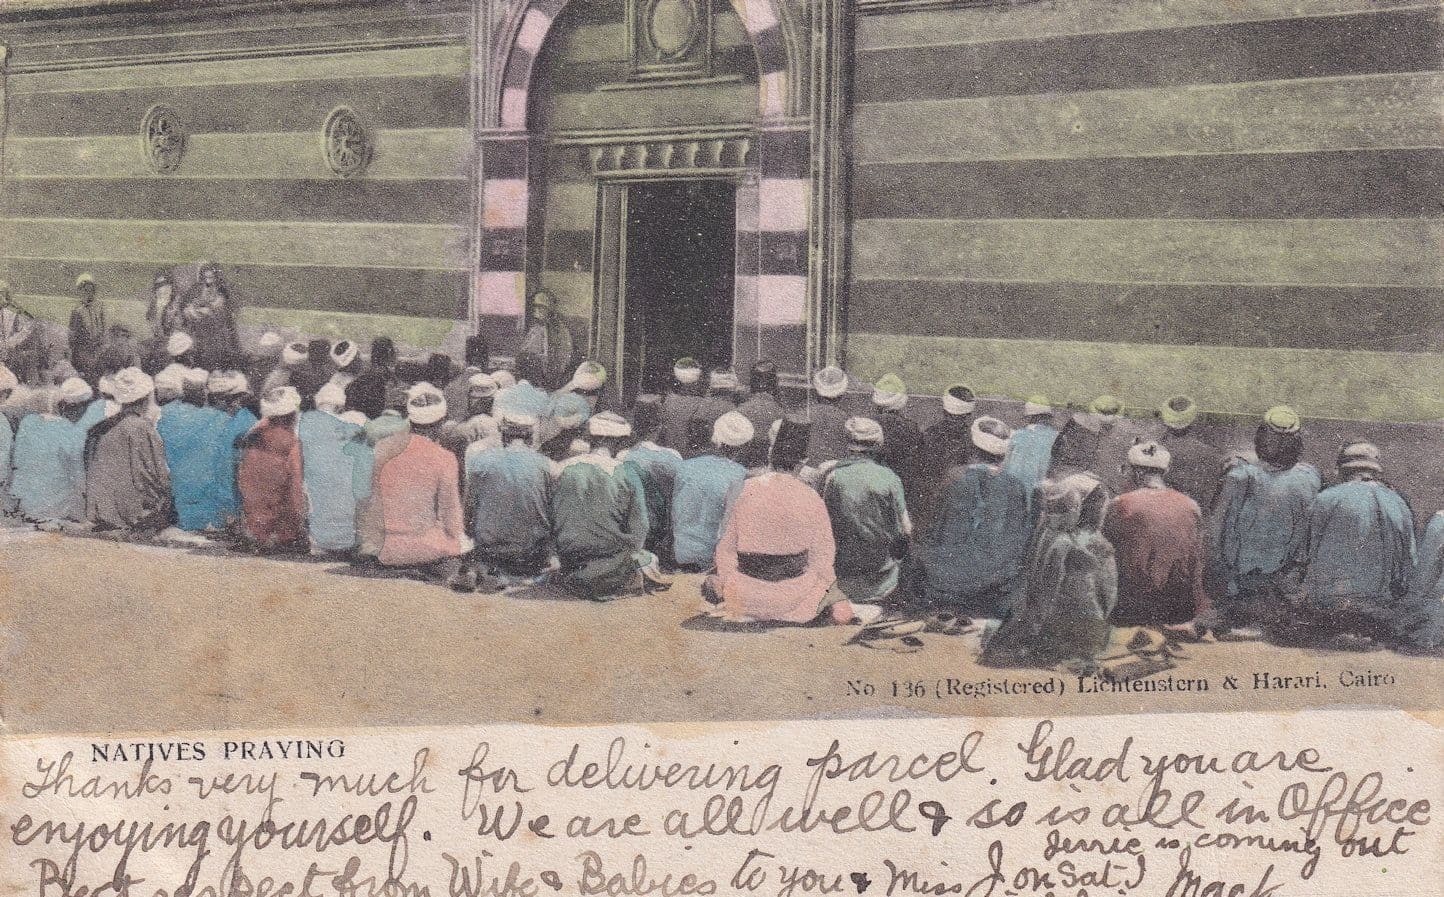 No 136 (Registered) Lichtenstern & Harari, Cairo
NATIVES PRAYING
Thanks very much for delivering parcel. Glad you are
enjoying yourself. We are all well & so is all in Office
Jerrie is coming out
Best respect from Wife & Babies to you & Miss J. on Sat.) Mack